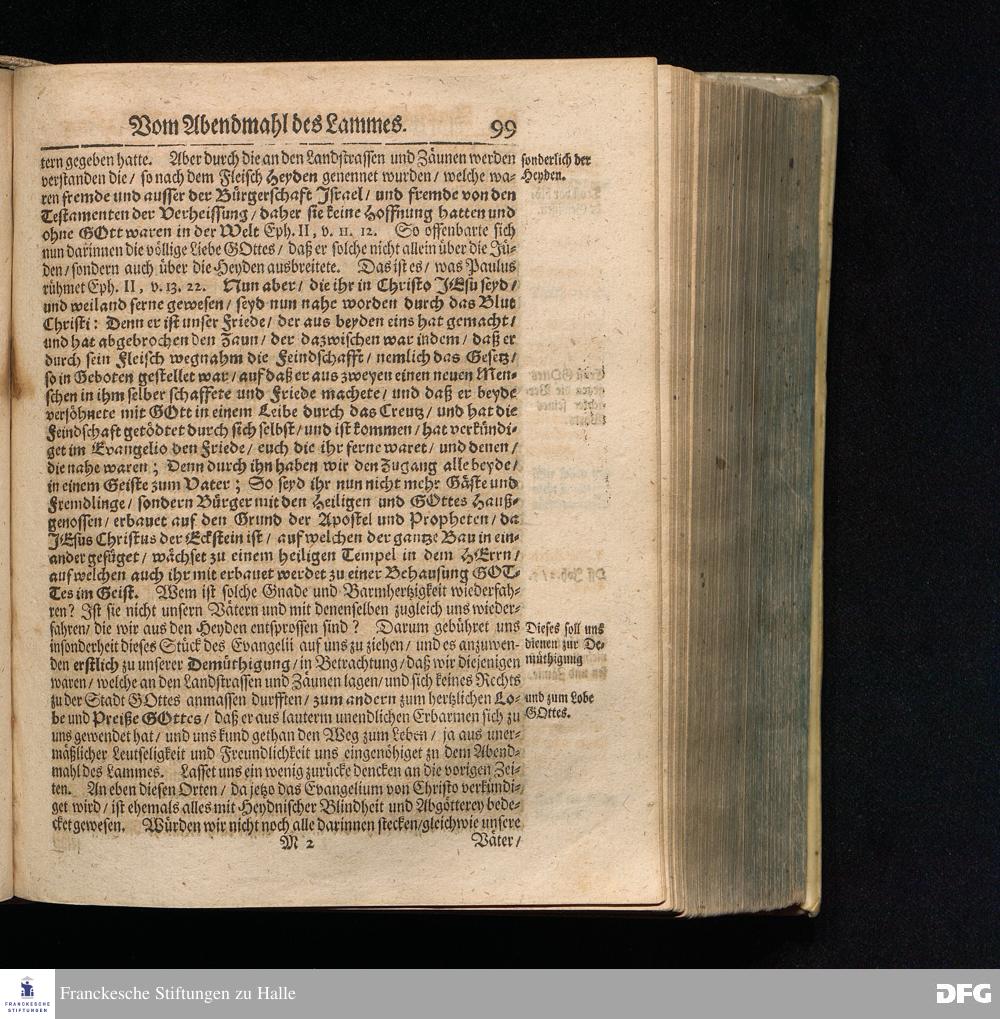 Vom Abendmahl des Lammes. 99
tern gegeben hatte. Aber durch die an den Landstrassen und Zäunen werden
verstanden die / so nach dem Fleisch Heyden genennet wurden / welche wa-
ren fremde und ausser der Bürgerschaft Israel / und fremde von den
Testamenten der Verheissung / daher sie keine Hoffnung hatten und
ohne GOtt waren in der Welt Eph. II, v. 11. 12. So offenbarte sich
nun dariñen die völlige Liebe GOttes / daß er solche nicht allein über die Jü-
den / sondern auch über die Heyden ausbreitete. Das ist es / was Paulus
rühmet Eph. II, v. 13. 22. Nun aber / die ihr in Christo JEsu seyd /
und weiland ferne gewesen / seyd nun nahe worden durch das Blut
Christi: Denn er ist unser Friede / der aus beyden eins hat gemacht /
und hat abgebrochen den Zaun / der dazwischen war indem / daß er
durch sein Fleisch wegnahm die Feindschafft / nemlich das Gesetz /
so in Geboten gestellet war / auf daß er aus zweyen einen neuen Men-
schen in ihm selber schaffete und Friede machete / und daß er beyde
versöhnete mit GOtt in einem Leibe durch das Creutz / und hat die
Feindschaft getödtet durch sich selbst / und ist kommen / hat verkündi-
get im Evangelio den Friede / euch die ihr ferne waret / und denen /
die nahe waren ; Denn durch ihn haben wir den Zugang alle beyde /
in einem Geiste zum Vater ; So seyd ihr nun nicht mehr Gäste und
Fremdlinge / sondern Bürger mit den Heiligen und GOttes Hauß-
genossen / erbauet auf den Grund der Apostel und Propheten / da
JEsus Christus der Eckstein ist / auf welchen der gantze Bau in ein-
ander gefüget / wächset zu einem heiligen Tempel in dem HErrn /
auf welchen auch ihr mit erbauet werdet zu einer Behausung GOT-
Tes im Geist. Wem ist solche Gnade und Barmhertzigkeit wiederfah-
ren? Ist sie nicht unsern Vätern und mit denenselben zugleich uns wieder-
fahren / die wir aus den Heyden entsprossen sind ? Darum gebühret uns
insonderheit dieses Stück des Evangelii auf uns zu ziehen / und es anzuwen-
den erstlich zu unserer Demüthigung / in Betrachtung / daß wir diejenigen
waren / welche an den Landstrassen und Zäunen lagen / und sich keines Rechts
zu der Stadt GOttes anmassen durfften / zum andern zum hertzlichen Lo-
be und Preiße GOttes / daß er aus lauterm unendlichen Erbarmen sich zu
uns gewendet hat / und uns kund gethan den Weg zum Leben / ja aus uner-
mäßlicher Leutseligkeit und Freundlichkeit uns eingenöhiget zu dem Abend-
mahl des Lammes. Lasset uns ein wenig zurücke dencken an die vorigen Zei-
ten. An eben diesen Orten / da jetzo das Evangelium von Christo verkündi-
get wird / ist ehemals alles mit Heydnischer Blindheit und Abgötterey bede-
cket gewesen. Würden wir nicht noch alle darinnen stecken / gleichwie unsere
M 2 Väter /
sonderlich der
Heyden.
Dieses soll uns
dienen zur De-
müthigung
und zum Lobe
GOttes.
FRANCKESCHE
STIFTUNGEN
Franckesche Stiftungen zu Halle
DFG